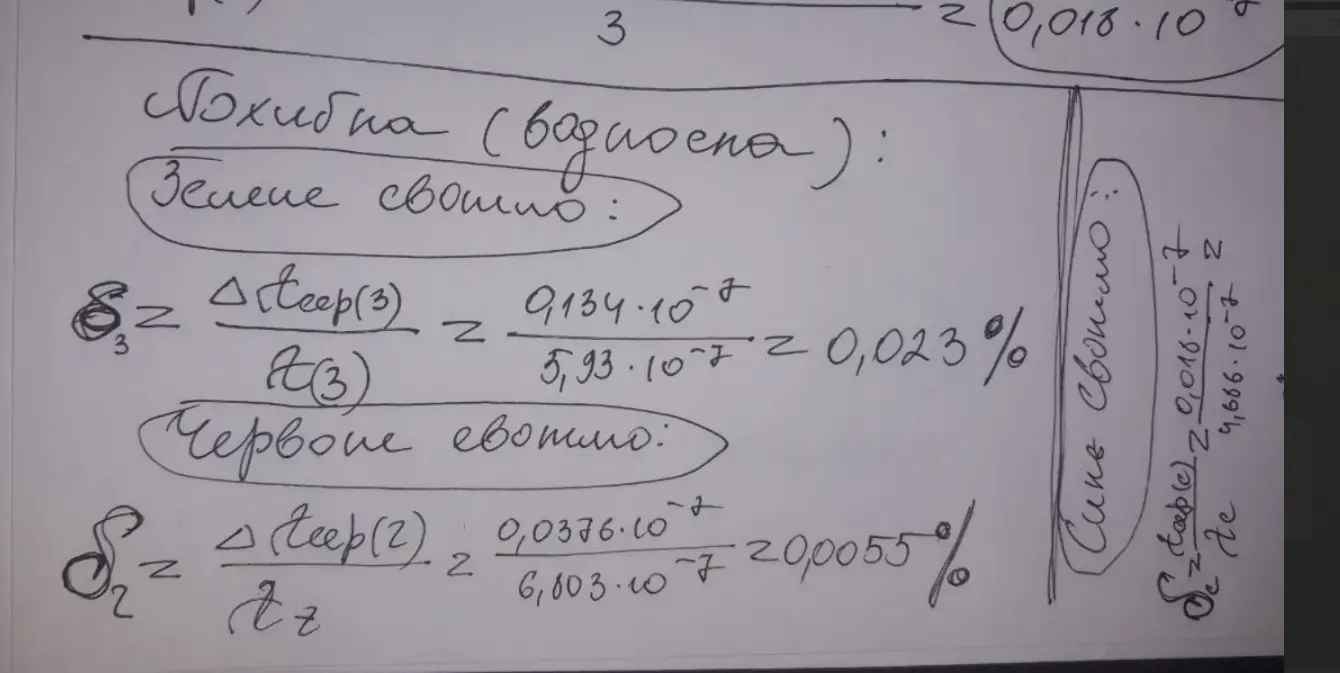 3 = 0,018 · 10
Похибка (відносна):
Зелене світло:
δ₃ = Δλсер(3) / λ(3) = 0,134 · 10⁻⁷ / 5,93 · 10⁻⁷ = 0,023 %
Червоне світло:
δ₂ = Δλсер(2) / λ₂ = 0,0376 · 10⁻⁷ / 6,803 · 10⁻⁷ = 0,0055 %
Синє світло:
δс = λсер(с) / λс = 0,018 · 10⁻⁷ / 4,666 · 10⁻⁷ =